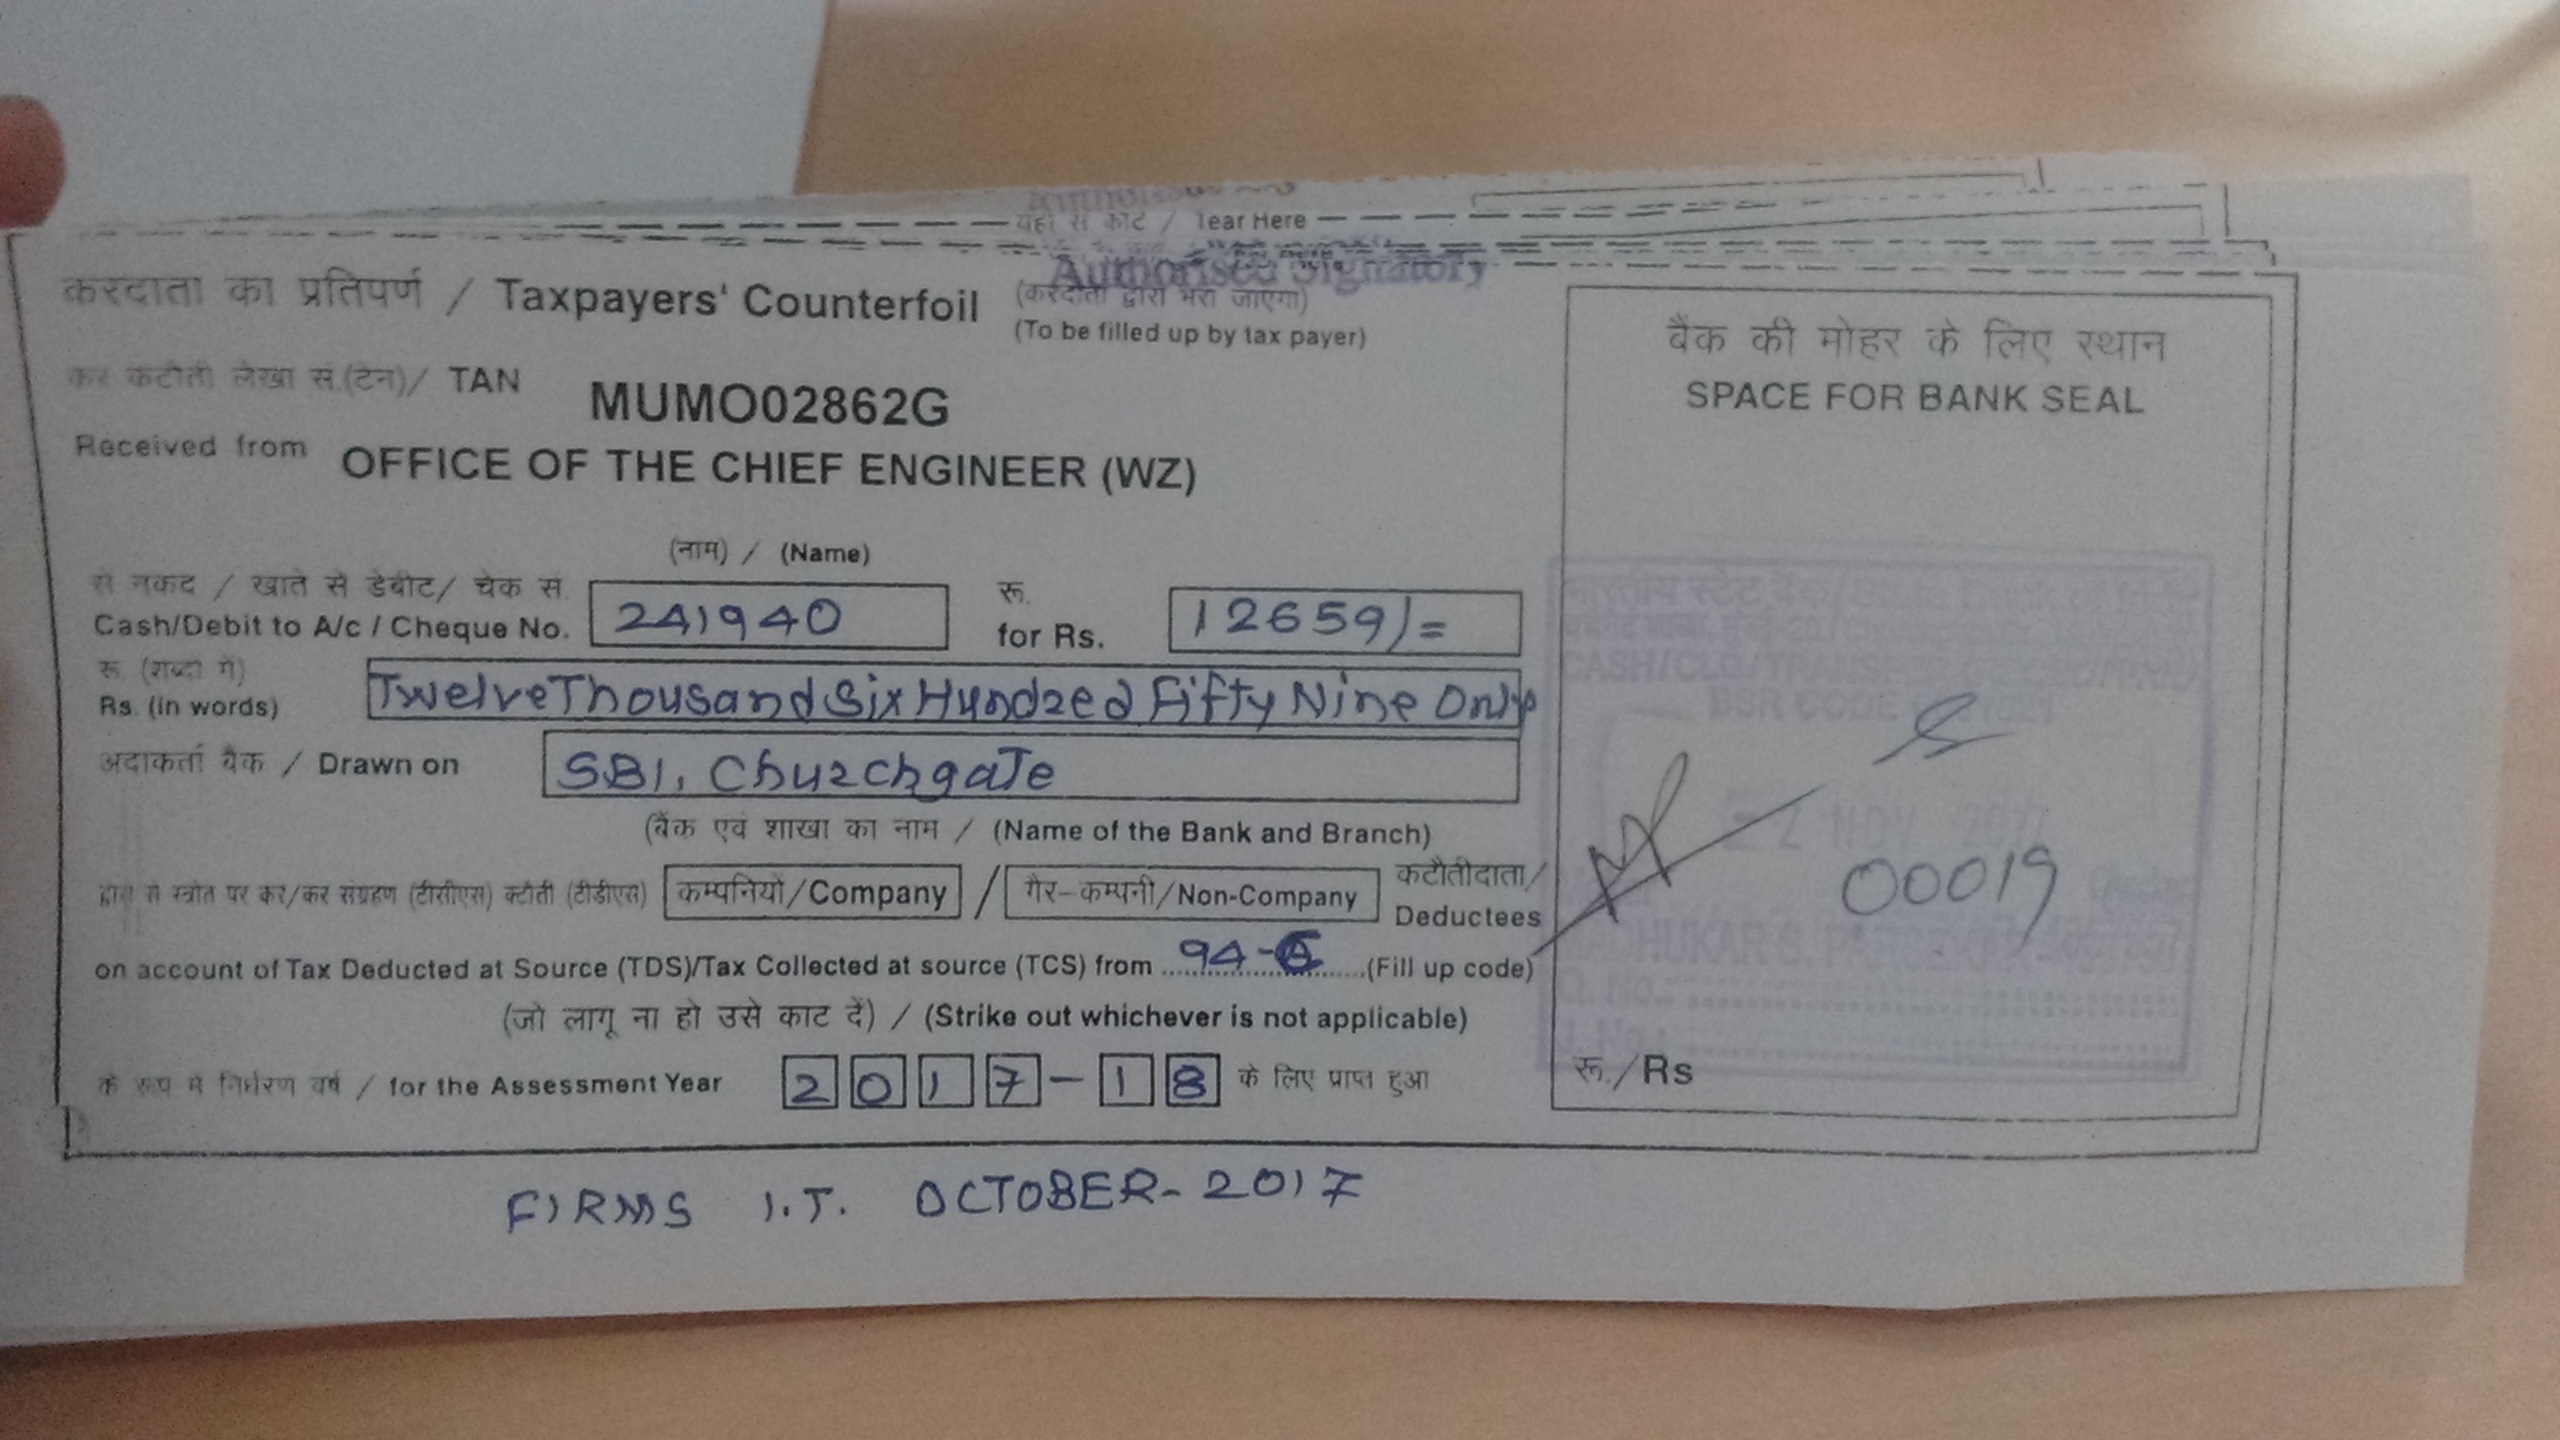 यहां से काट / Tear Here
Authorised Signatory
करदाता का प्रतिपर्ण / Taxpayers' Counterfoil (करदाता द्वारा भरा जाएगा)
(To be filled up by tax payer)
कर कटौती लेखा सं.(टेन)/ TAN MUMO02862G
Received from OFFICE OF THE CHIEF ENGINEER (WZ)
(नाम) / (Name)
से नकद / खाते से डेबीट/ चेक सं. रू.
Cash/Debit to A/c / Cheque No. 241940 for Rs. 12659/=
रू. (शब्दो में)
Rs. (in words) Twelve Thousand Six Hundred Fifty Nine Only
अदाकर्ता बैंक / Drawn on SBI, Churchgate
(बैंक एवं शाखा का नाम / (Name of the Bank and Branch)
द्वारा से स्त्रोत पर कर/कर संग्रहण (टीसीएस) क्टौती (टीडीएस) कम्पनियों/Company / गैर-कम्पनी/Non-Company कटौतीदाता/
Deductees
on account of Tax Deducted at Source (TDS)/Tax Collected at source (TCS) from 94- (Fill up code)
(जो लागू ना हो उसे काट दें) / (Strike out whichever is not applicable)
के रूप मे निर्धरण वर्ष / for the Assessment Year 2017-18 के लिए प्राप्त हुआ
बैंक की मोहर के लिए स्थान
SPACE FOR BANK SEAL
भारतीय स्टेट बैंक
BSR CODE
NOV 2017
00019
रू./Rs
FIRMS I.T. OCTOBER-2017